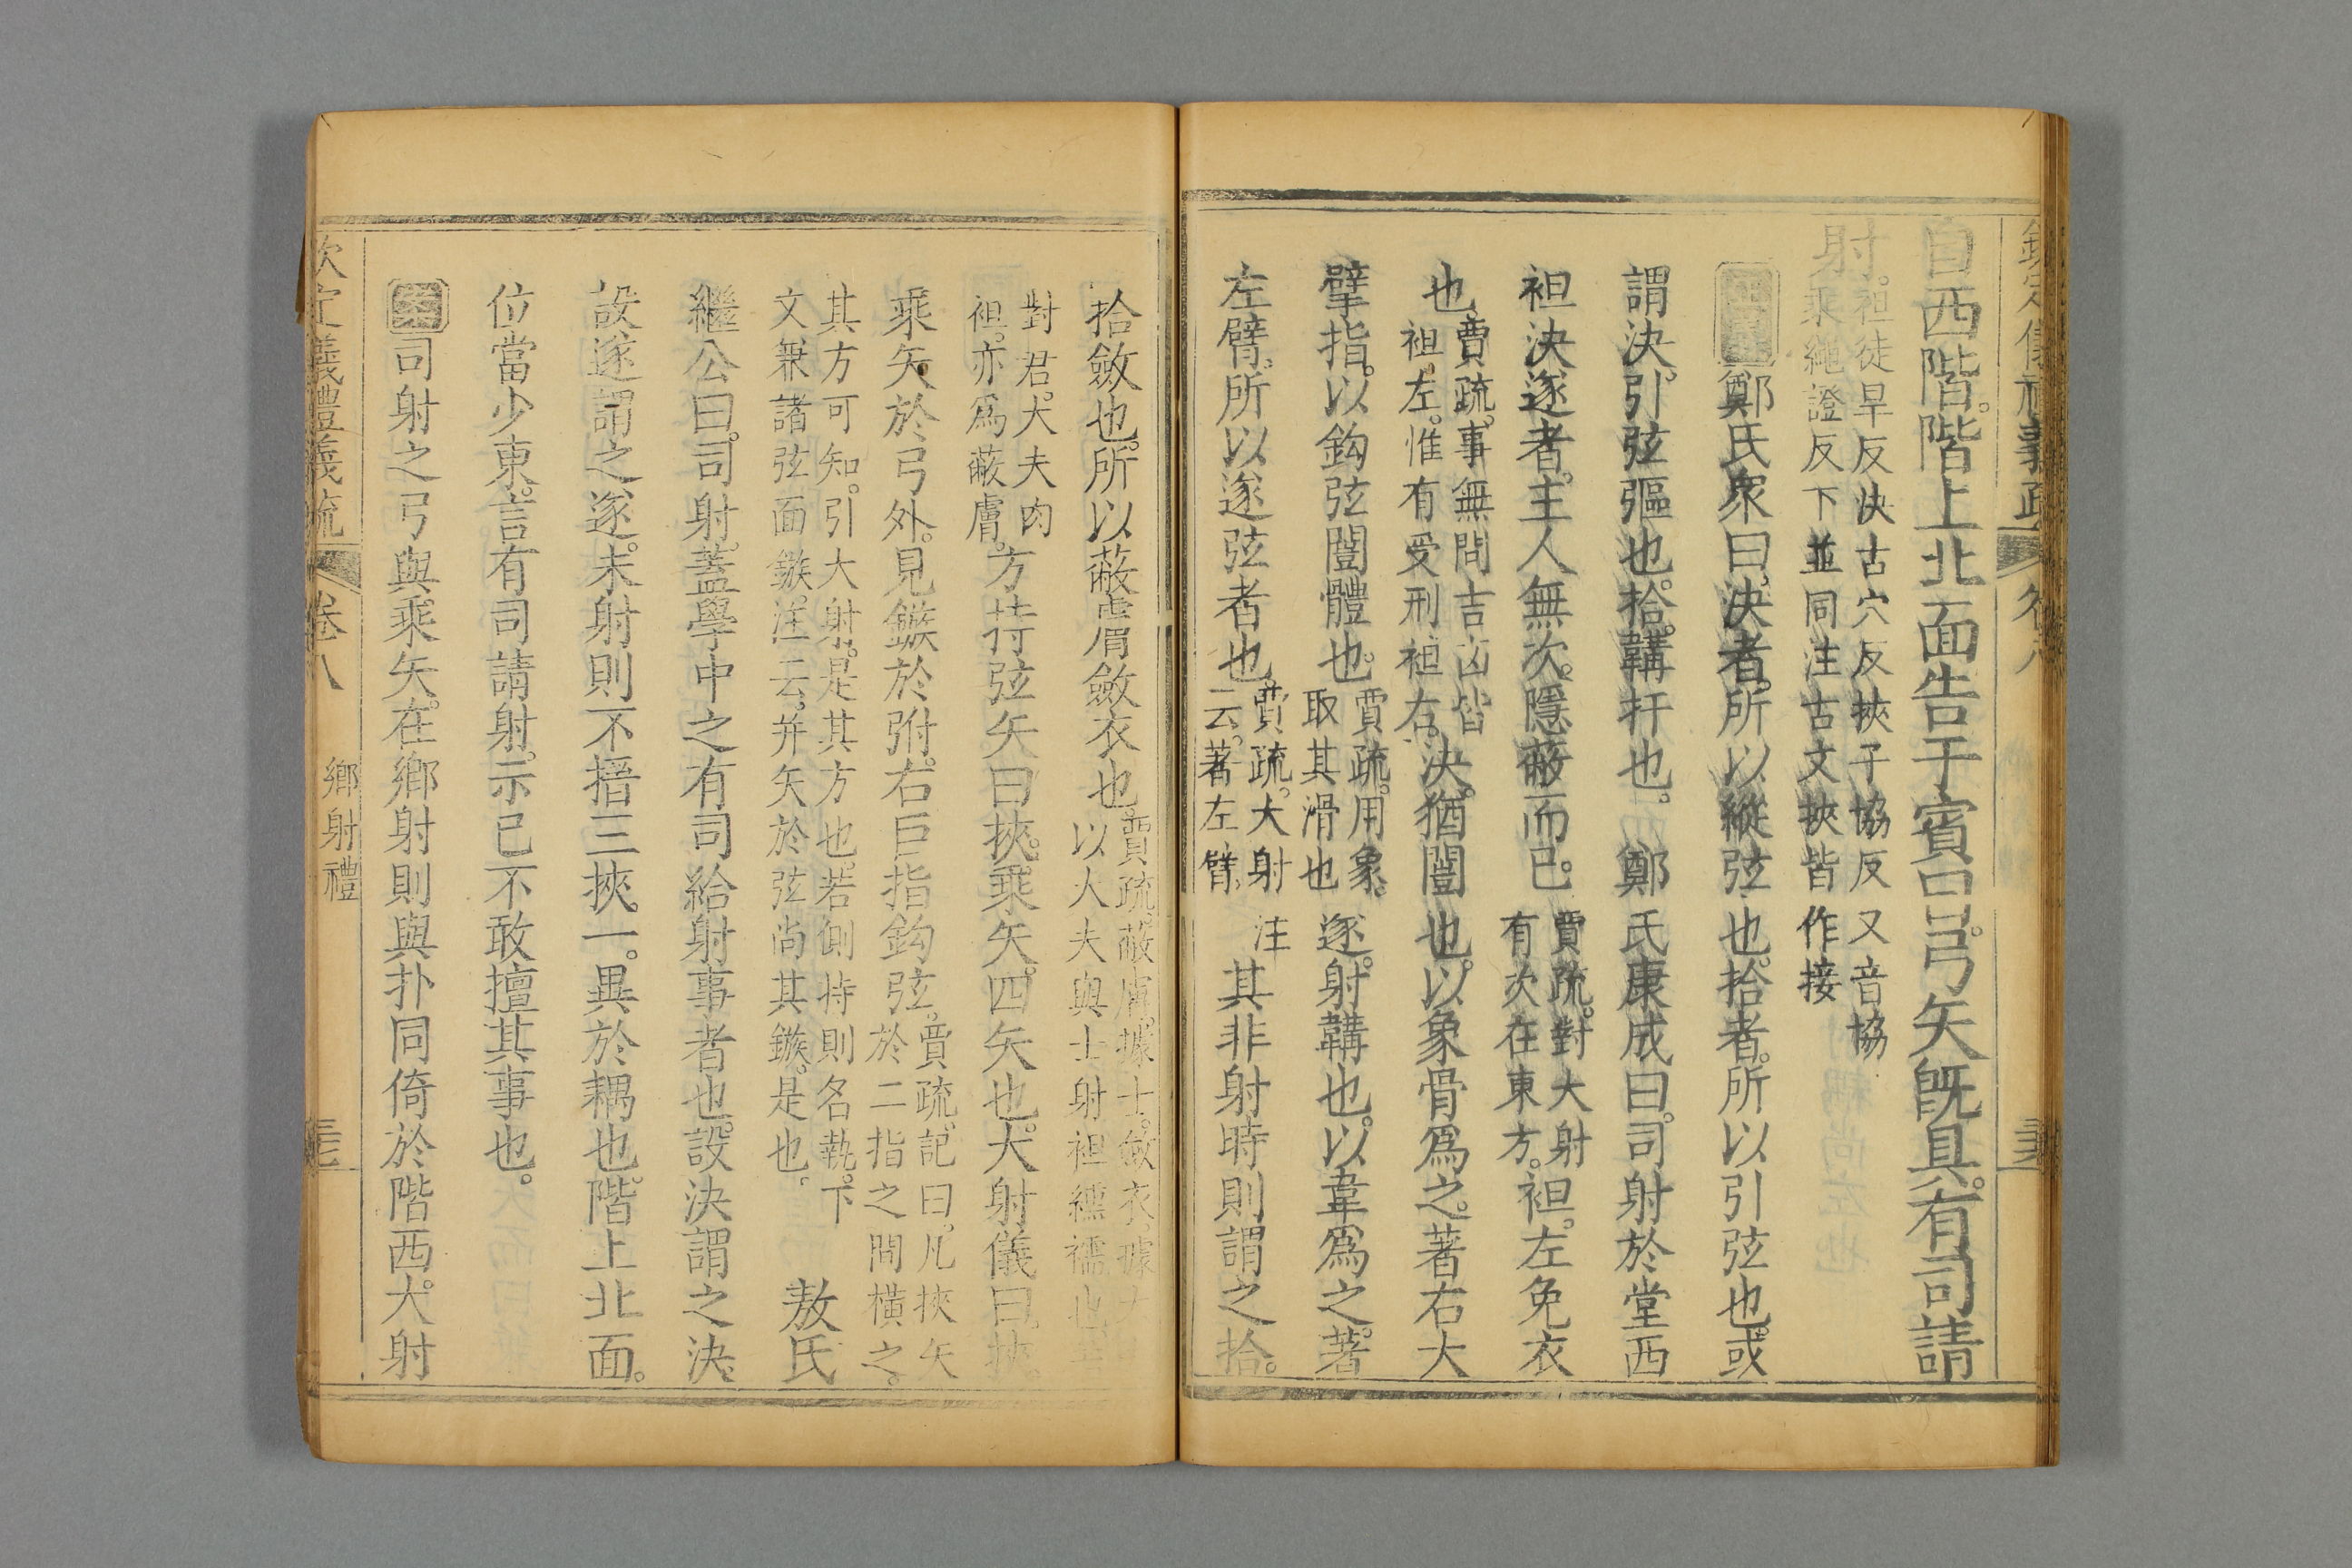 自西階階上北面告于賓曰弓矢既具有司請
射袒徒早反決古穴反挾子協反又音協
乘繩證反下並同注古文挾皆作接
正義鄭氏衆曰決者所以縱弦也拾者所以引弦也或
謂決引弦彄也拾韝扞也鄭氏康成曰司射於堂西
袒決遂者主人無次隱蔽而已賈疏對大射
有次在東方袒左免衣
也賈疏事無問吉凶皆
袒左惟有受刑袒右決猶闓也以象骨爲之著右大
擘指以鈎弦闓體也賈疏用象
取其滑也遂射韝也以韋爲之著
左臂所以遂弦者也賈疏大射注
云著左臂其非射時則謂之拾
拾斂也所以蔽膚斂衣也賈疏蔽膚據士斂衣據大
以大夫與士射袒纁襦也
對君大夫肉
袒亦爲蔽膚方持弦矢曰挾乘矢四矢也大射儀曰挾
乘矢於弓外見鏃於弣右巨指鈎弦賈疏記曰凡挾矢
於二指之間橫之
其方可知引大射是其方也若側持則名執下
文兼諸弦面鏃注云并矢於弦尚其鏃是也敖氏
繼公曰司射蓋學中之有司給射事者也設決謂之決
設遂謂之遂未射則不搢三挾一異於耦也階上北面
位當少東言有司請射示已不敢擅其事也
案司射之弓與乘矢在鄉射則與扑同倚於階西大射
欽定儀禮義疏 卷八 鄉射禮